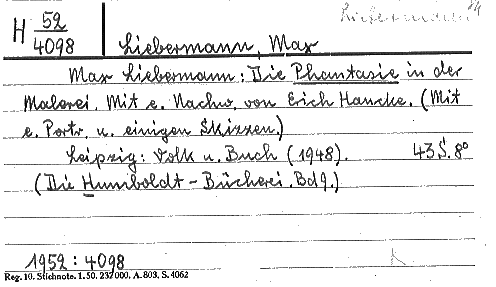 H 52
4098
Liebermann, Max
Max Liebermann: Die Phantasie in der
Malerei. Mit e. Nachw. von Erich Hancke. (Mit
e. Portr. u. einigen Skizzen.)
Leipzig: Volk u. Buch (1948). 43 S. 8°
(Die Humboldt-Bücherei. Bd 9.)
1952 : 4098
Reg. 10. Stichnote. 1. 50. 232 000. A. 803. S. 4062